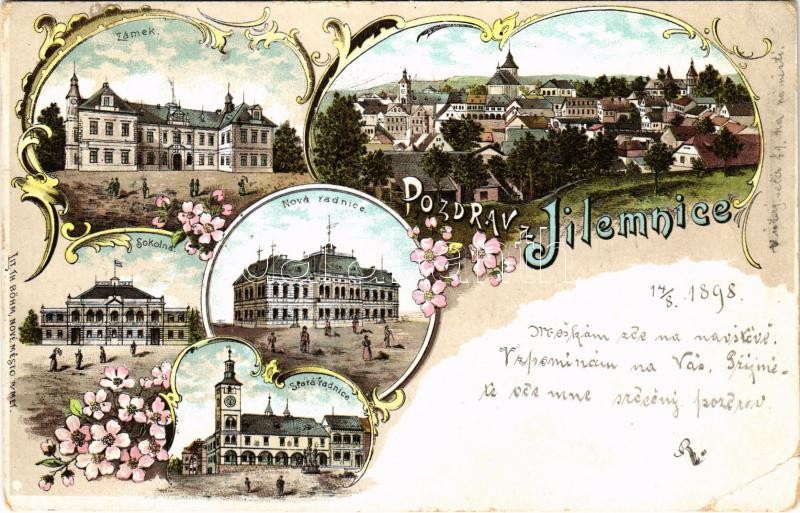 Zámek.
POZDRAV z Jilemnice
Nová radnice.
Sokolna.
Stará radnice.
LIT. J.H. BÖHM, NOVÉ MĚSTO N/MET.
14/8. 1898.
Meškám zde na navštěvě.
Vzpomínám na Vás. Přijmě-
te ode mne srdečný pozdrav.
R.